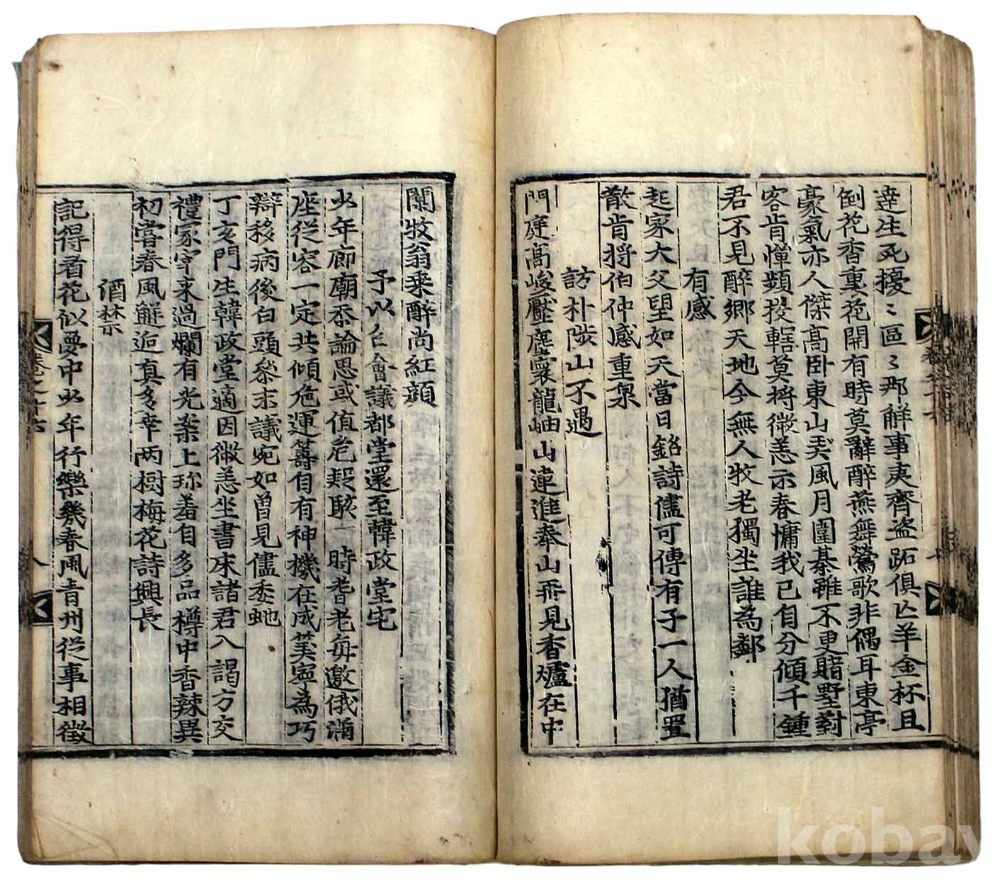 達生死擾〻區〻那解事夷齊盜跖俱亡羊金杯且
倒花香重花開有時莫辭醉燕舞鶯歌非偶耳東亭
豪氣亦人傑高臥東山弄風月圍碁雖不更賭墅對
客肯憚頻投轄莫將微恙示春慵我已自分傾千鍾
君不見醉鄉天地今無人牧老獨坐誰為鄰
有感
起家大父望如天當日銘詩儘可傳有子一人猶置
散肯將伯仲感重泉
訪朴陟山不遇
門庭高峻壓塵寰龍岫山連進奉山再見香爐在中
闌牧翁乘醉尚紅顏
予以 會議都堂還至韓政堂宅
少年廊廟忝論思或值危疑駭一時耆老每邀俄滿
座從容一定共傾危運籌自有神機在成筭寧為巧
辯移病後白頭叅末議宛如曾見儘委蛇
丁亥門生韓政堂適因微恙坐書床諸君入謁方交
禮冢宰來過爛有光案上珎羞自多品樽中香辣異
初嘗春風邂逅真多幸两樹梅花詩興長
酒禁
記得看花似夢中少年行樂幾春風青州從事相徵
kobay